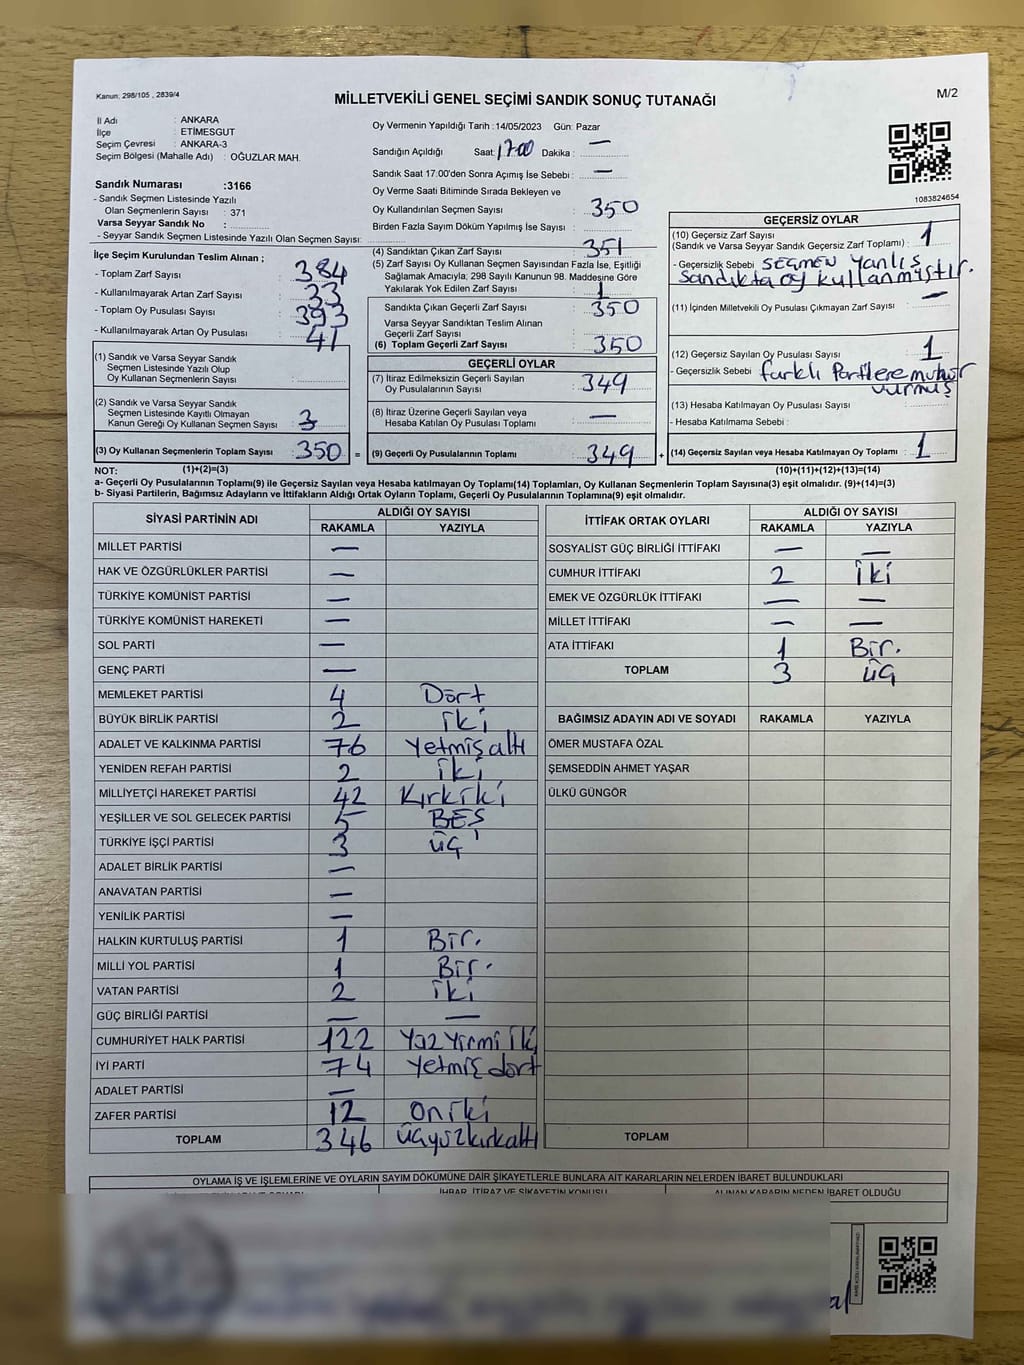 Kanun: 298/105 , 2839/4
MİLLETVEKİLİ GENEL SEÇİMİ SANDIK SONUÇ TUTANAĞI
M/2
İl Adı : ANKARA
İlçe : ETİMESGUT
Seçim Çevresi : ANKARA-3
Seçim Bölgesi (Mahalle Adı) : OĞUZLAR MAH.
Sandık Numarası :3166
- Sandık Seçmen Listesinde Yazılı
Olan Seçmenlerin Sayısı : 371
Varsa Seyyar Sandık No :
- Seyyar Sandık Seçmen Listesinde Yazılı Olan Seçmen Sayısı:
Oy Vermenin Yapıldığı Tarih :14/05/2023 Gün: Pazar
Sandığın Açıldığı Saat: 17:00 Dakika : —
Sandık Saat 17:00'den Sonra Açımış İse Sebebi : —
Oy Verme Saati Bitiminde Sırada Bekleyen ve
Oy Kullandırılan Seçmen Sayısı : 350
Birden Fazla Sayım Döküm Yapılmış İse Sayısı :
1083824654
İlçe Seçim Kurulundan Teslim Alınan ;
- Toplam Zarf Sayısı : 384
- Kullanılmayarak Artan Zarf Sayısı : 33
- Toplam Oy Pusulası Sayısı : 393
- Kullanılmayarak Artan Oy Pusulası : 41
(1) Sandık ve Varsa Seyyar Sandık
Seçmen Listesinde Yazılı Olup
Oy Kullanan Seçmenlerin Sayısı :
(2) Sandık ve Varsa Seyyar Sandık
Seçmen Listesinde Kayıtlı Olmayan
Kanun Gereği Oy Kullanan Seçmen Sayısı : 3
(3) Oy Kullanan Seçmenlerin Toplam Sayısı : 350 =
(4) Sandıktan Çıkan Zarf Sayısı : 351
(5) Zarf Sayısı Oy Kullanan Seçmen Sayısından Fazla İse, Eşitliği
Sağlamak Amacıyla, 298 Sayılı Kanunun 98. Maddesine Göre
Yakılarak Yok Edilen Zarf Sayısı : 1
Sandıkta Çıkan Geçerli Zarf Sayısı : 350
Varsa Seyyar Sandıktan Teslim Alınan
Geçerli Zarf Sayısı :
(6) Toplam Geçerli Zarf Sayısı : 350
GEÇERLİ OYLAR
(7) İtiraz Edilmeksizin Geçerli Sayılan
Oy Pusulalarının Sayısı : 349
(8) İtiraz Üzerine Geçerli Sayılan veya
Hesaba Katılan Oy Pusulası Toplamı : —
(9) Geçerli Oy Pusulalarının Toplamı : 349 +
GEÇERSİZ OYLAR
(10) Geçersiz Zarf Sayısı
(Sandık ve Varsa Seyyar Sandık Geçersiz Zarf Toplamı) : 1
- Geçersizlik Sebebi : SEÇMEN Yanlış
Sandıkta oy kullanmıştır.
(11) İçinden Milletvekili Oy Pusulası Çıkmayan Zarf Sayısı : —
(12) Geçersiz Sayılan Oy Pusulası Sayısı : 1
- Geçersizlik Sebebi : farklı Partilere mühür
vurmuş
(13) Hesaba Katılmayan Oy Pusulası Sayısı :
- Hesaba Katılmama Sebebi :
(14) Geçersiz Sayılan veya Hesaba Katılmayan Oy Toplamı : 1
NOT: (1)+(2)=(3) (10)+(11)+(12)+(13)=(14)
a- Geçerli Oy Pusulalarının Toplamı(9) ile Geçersiz Sayılan veya Hesaba katılmayan Oy Toplamı(14) Toplamları, Oy Kullanan Seçmenlerin Toplam Sayısına(3) eşit olmalıdır. (9)+(14)=(3)
b- Siyasi Partilerin, Bağımsız Adayların ve İttifakların Aldığı Ortak Oyların Toplamı, Geçerli Oy Pusulalarının Toplamına(9) eşit olmalıdır.
SİYASİ PARTİNİN ADI ALDIĞI OY SAYISI
RAKAMLA YAZIYLA
MİLLET PARTİSİ —
HAK VE ÖZGÜRLÜKLER PARTİSİ —
TÜRKİYE KOMÜNİST PARTİSİ —
TÜRKİYE KOMÜNİST HAREKETİ —
SOL PARTİ —
GENÇ PARTİ —
MEMLEKET PARTİSİ 4 Dört
BÜYÜK BİRLİK PARTİSİ 2 iki
ADALET VE KALKINMA PARTİSİ 76 Yetmiş altı
YENİDEN REFAH PARTİSİ 2 iki
MİLLİYETÇİ HAREKET PARTİSİ 42 Kırk iki
YEŞİLLER VE SOL GELECEK PARTİSİ 5 BEŞ
TÜRKİYE İŞÇİ PARTİSİ 3 üç
ADALET BİRLİK PARTİSİ —
ANAVATAN PARTİSİ —
YENİLİK PARTİSİ —
HALKIN KURTULUŞ PARTİSİ 1 Bir.
MİLLİ YOL PARTİSİ 1 Bir.
VATAN PARTİSİ 2 iki
GÜÇ BİRLİĞİ PARTİSİ — —
CUMHURİYET HALK PARTİSİ 122 Yüz Yirmi iki
İYİ PARTİ 74 Yetmiş dört
ADALET PARTİSİ —
ZAFER PARTİSİ 12 On iki
TOPLAM 346 üçyüzkırkaltı
İTTİFAK ORTAK OYLARI ALDIĞI OY SAYISI
RAKAMLA YAZIYLA
SOSYALİST GÜÇ BİRLİĞİ İTTİFAKI — —
CUMHUR İTTİFAKI 2 iki
EMEK VE ÖZGÜRLÜK İTTİFAKI — —
MİLLET İTTİFAKI — —
ATA İTTİFAKI 1 Bir.
TOPLAM 3 üç
BAĞIMSIZ ADAYIN ADI VE SOYADI RAKAMLA YAZIYLA
ÖMER MUSTAFA ÖZAL
ŞEMSEDDİN AHMET YAŞAR
ÜLKÜ GÜNGÖR
TOPLAM
OYLAMA İŞ VE İŞLEMLERİNE VE OYLARIN SAYIM DÖKÜMÜNE DAİR ŞİKAYETLERLE BUNLARA AİT KARARLARIN NELERDEN İBARET BULUNDUKLARI
İHBAR, İTİRAZ VE ŞİKAYETİN KONUSU ALINAN KARARIN NEDEN İBARET OLDUĞU